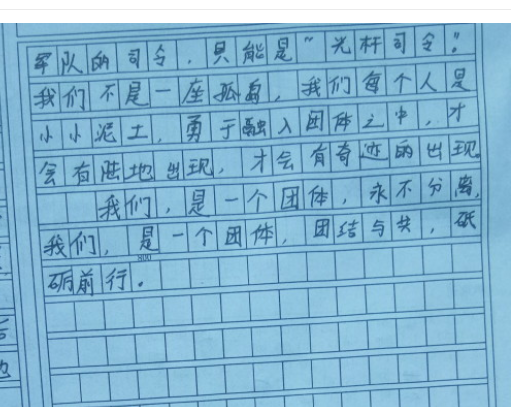 军队的司令，只能是"光杆司令"。
我们不是一座孤岛，我们每个人是
小小泥土，勇于融入团体之中，才
会有陆地出现，才会有奇迹的出现。
我们，是一个团体，永不分离，
我们，是一个团体，团结与共，砥
砺前行。
800